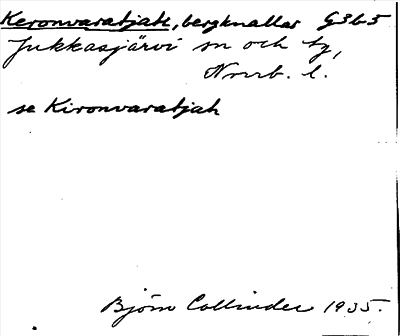 Keronvaratjåk, bergknallar G3b5
Jukkasjärvi sn och tg,
Nrrb. l.
se Kironvaratjåh
Björn Collinder 1935.